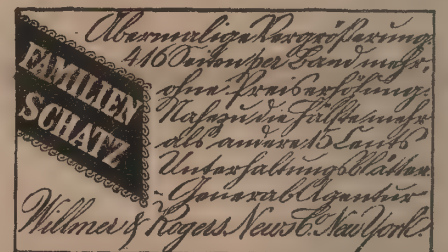 Abermalige Vergrößerung.
416 Seiten per Band mehr,
ohne Preiserhöhung.
Nahezu die Hälfte mehr
als andere 15 Cents
Unterhaltungs Blätter.
General Agentur
Willmer & Rogers News C. New York.
FAMILIEN
SCHATZ